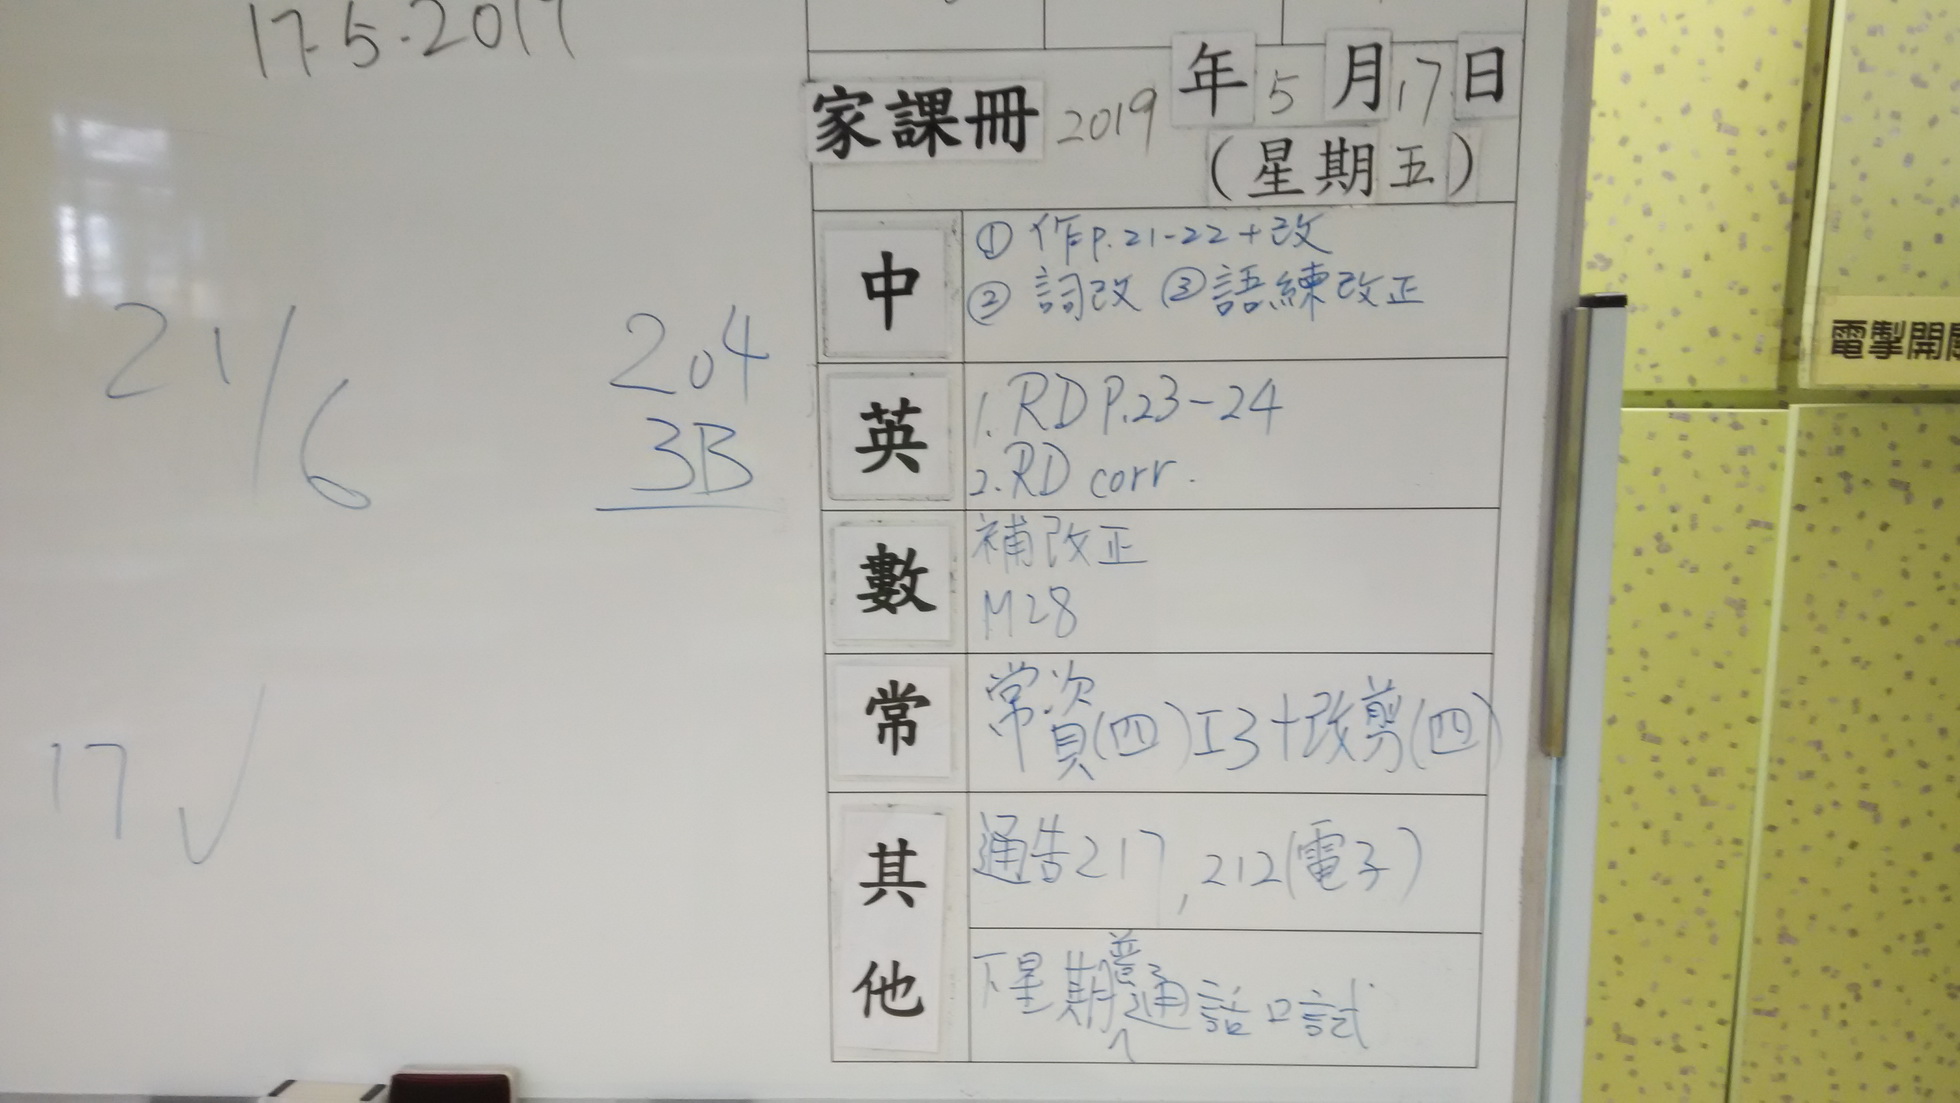 17.5.2019
21/6
204
3B
17 ✓
家課冊 2019年5月17日
(星期五)
中
① 作p.21-22+改
② 詞改 ③ 語練改正
英
1. RD P.23-24
2. RD corr.
數
補改正
M28
常
常資(四)I3+改剪(四)
其他
通告217, 212(電子)
下星期普通話口試
電掣開